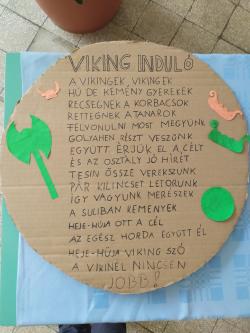 VIKING INDULÓ
A VIKINGEK, VIKINGEK
HÚ DE KEMÉNY GYEREKEK
RECSEGNEK A KORBÁCSOK
RETTEGNEK A TANÁROK
FELVONULNI MOST MEGYÜNK
GÓLYAHÉN RÉSZT VESZÜNK
EGYÜTT ÉRJÜK EL A CÉLT
ÉS AZ OSZTÁLY JÓ HÍRÉT
TESIN ÖSSZE VEREKSZÜNK
PÁR KILINCSET LETÖRÜNK
ÍGY VAGYUNK MERÉSZEK
A SULIBAN KEMÉNYEK
HEJE-HUJA OTT A CÉL
AZ EGÉSZ HORDA EGYÜTT ÉL
HEJE-HÚJA VIKING SZÓ
A VIKINÉL NINCSEN
JOBB!